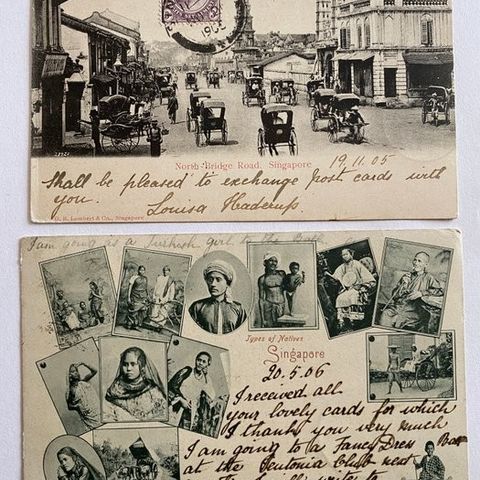 1905
North Bridge Road, Singapore
19.11.05
Shall be pleased to exchange post cards with
you.
Louisa Haderup.
G. R. Lambert & Co., Singapore
I am going as a Turkish girl to the Ball
Types of Natives
Singapore
20.5.06
I received all
your lovely cards for which
I thank you very much
I am going to a Fancy Dress Ball
at the Teutonia Club next
write to